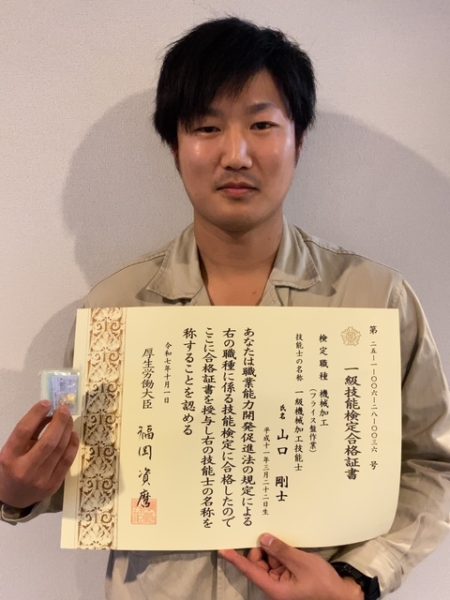 第二五-一-〇〇六-二八-〇〇三六号
一級技能検定合格証書
検定職種 機械加工
(フライス盤作業)
技能士の名称 一級機械加工技能士
氏名 山口 剛士
平成十一年三月二十二日生
あなたは職業能力開発促進法の規定による
右の職種に係る技能検定に合格したので
ここに合格証書を授与し右の技能士の名称を
称することを認める
令和七年十月一日
厚生労働大臣 福岡 資麿